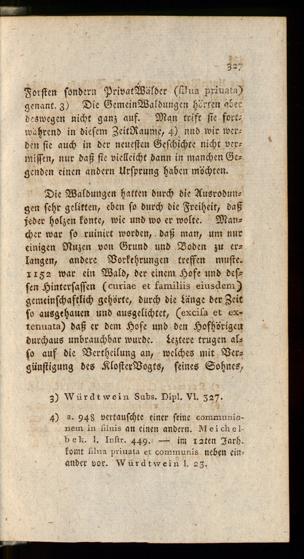 327
Forsten sondern PrivatWälder (silua priuata)
genant. 3) Die GemeinWaldungen hörten aber
deswegen nicht ganz auf. Man trift sie fort-
während in diesem ZeitRaume, 4) und wir wer-
den sie auch in der neuesten Geschichte nicht ver-
missen, nur daß sie vielleicht dann in manchen Ge-
genden einen andern Ursprung haben möchten.
Die Waldungen hatten durch die Ausrodun-
gen sehr gelitten, eben so durch die Freiheit, daß
jeder holzen konte, wie und wo er wolte. Man-
cher war so ruinirt worden, daß man, um nur
einigen Nuzen von Grund und Boden zu er-
langen, andere Vorkehrungen treffen muste.
1152 war ein Wald, der einem Hofe und des-
sen Hintersassen (curiae et familiis eiusdem)
gemeinschaftlich gehörte, durch die Länge der Zeit
so ausgehauen und ausgelichtet, (excisa et ex-
tenuata) daß er dem Hofe und den Hofhörigen
durchaus unbrauchbar wurde. Leztere trugen al-
so auf die Vertheilung an, welches mit Ver-
günstigung des KlosterVogts, seines Sohnes,
3) Würdtwein Subs. Dipl. VI. 327.
4) a. 948 vertauschte einer seine communio-
nem in siluis an einen andern. Meichel-
bek. l. Instr. 449. — im 12ten Jarh.
komt silua priuata et communis neben ein-
ander vor. Würdtwein l. 23.